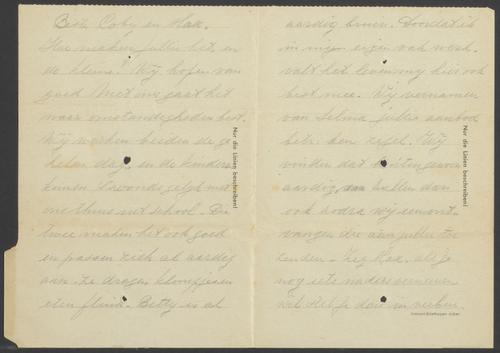 Best Coby en Max.
Hoe maken jullie het, en
de kleine? Wij hopen van
goed. Met ons gaat het
naar omstandigheden best.
Wij werken beiden de ge
helen dag, en de kinders
komen 's avonds gelijk met
ons thuis uit school. De
twee maken het ook goed
en passen zich al aardig
aan. Ze dragen klompjes en
eten flink. Betty is al
aardig bruin. Doordat ik
in mijn eigen vak werk
valt het leven mij hier ook
best mee. Wij vernamen
van Selma jullie aanbod
betr. een tafel. Wij
vinden dat buitengewoon
aardig, en zullen dan
ook zodra wij
vangen die aan jullie toe
zenden. Zeg Max, als je
nog iets naders vernomen
Nur die Linien beschreiben!
Nur die Linien beschreiben!